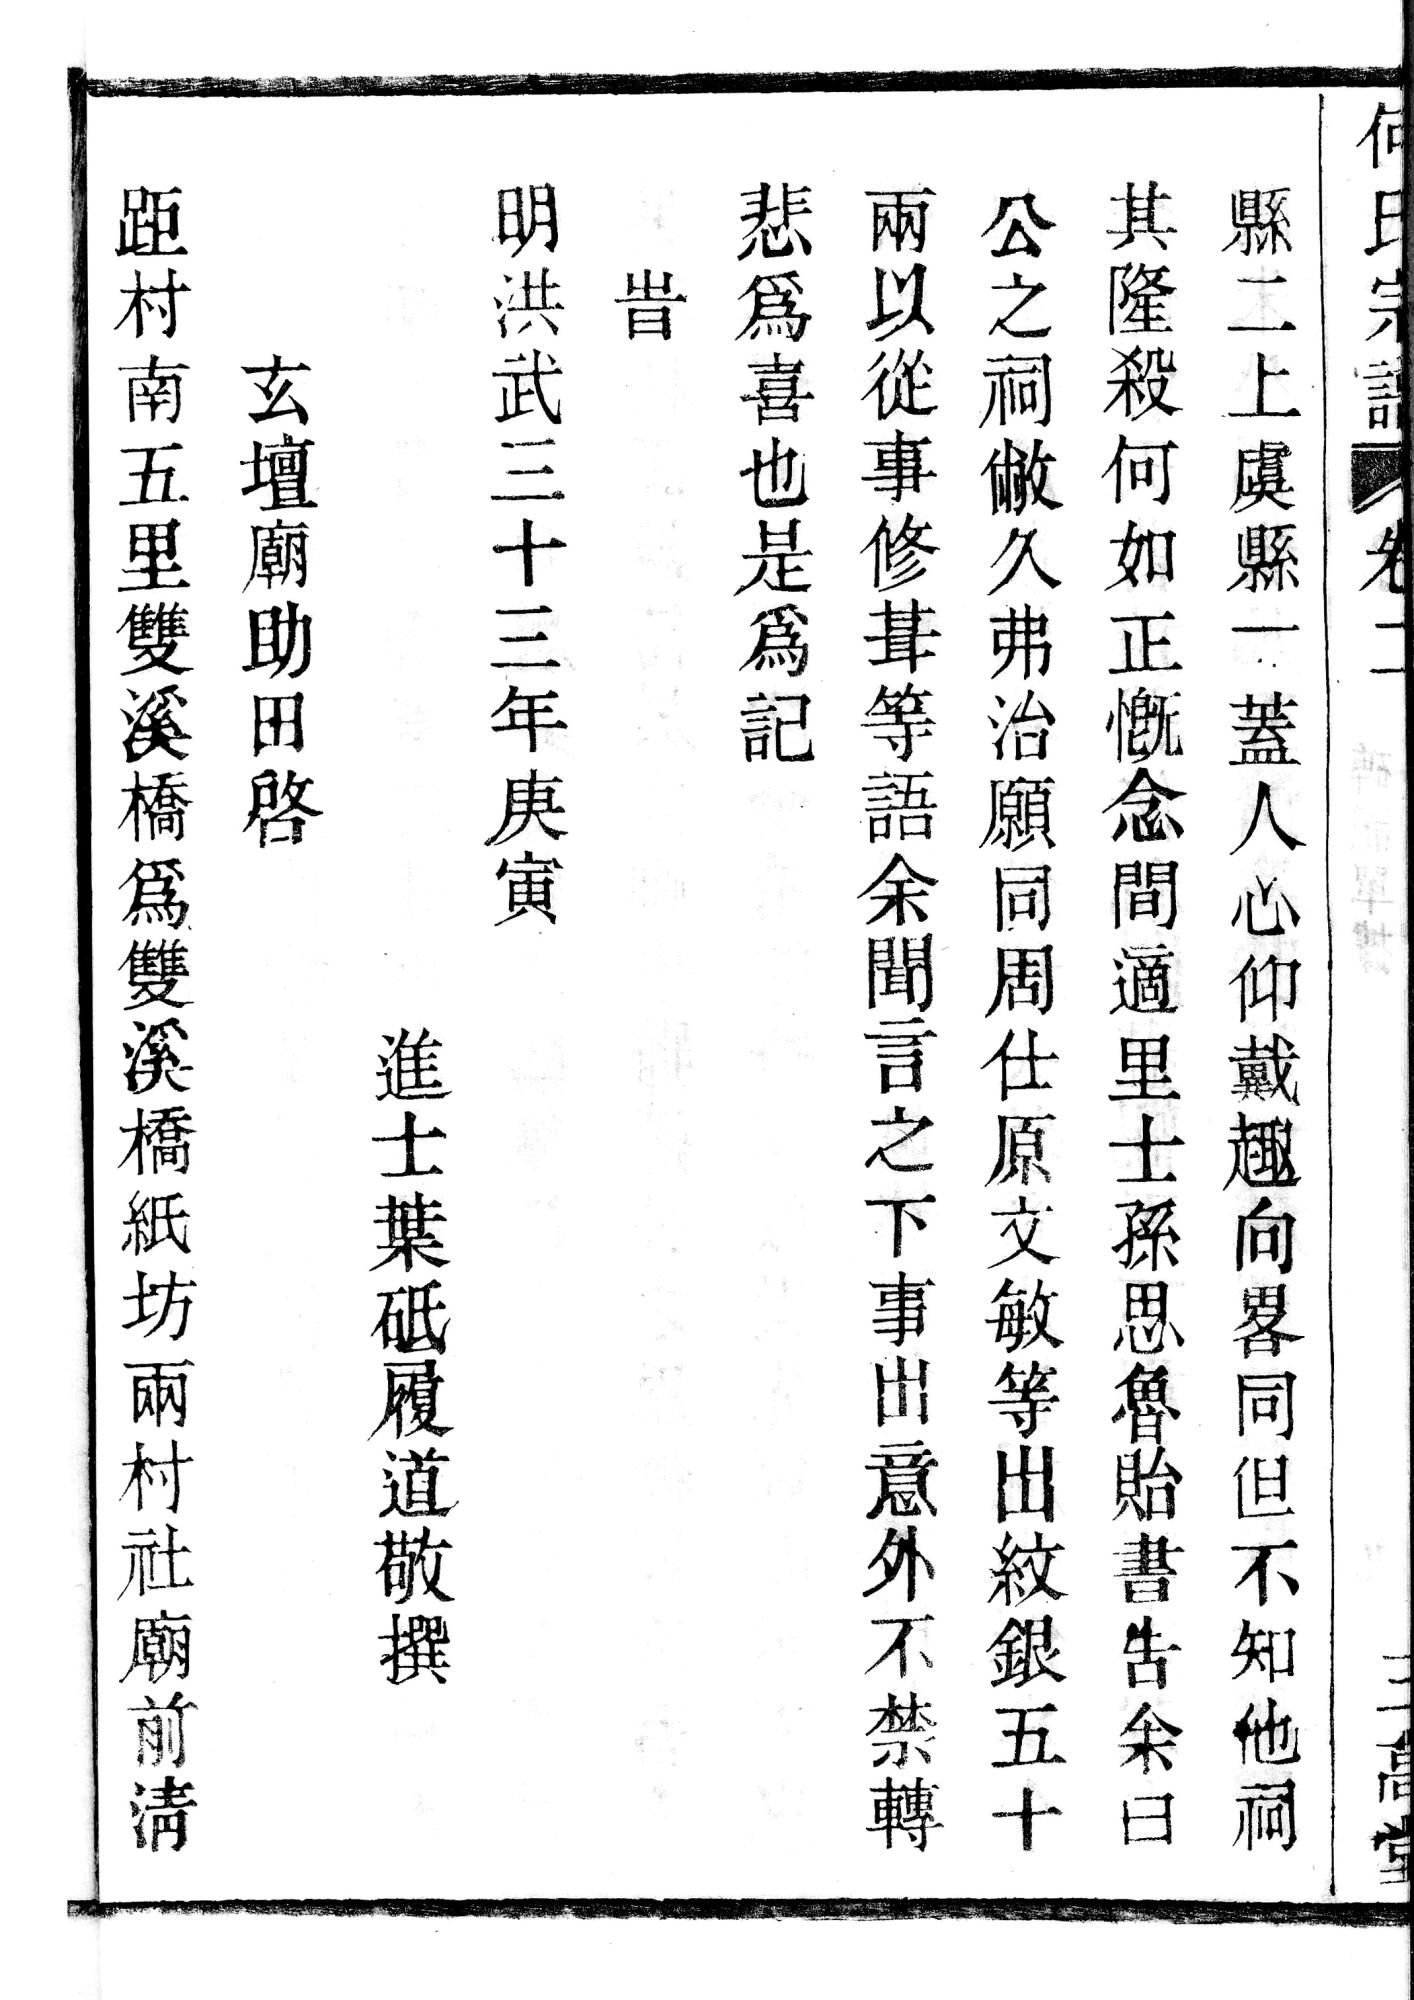 何氏宗譜 卷二 三高堂
縣二上虞縣一蓋人心仰戴趣向畧同但不知他祠
其隆殺何如正慨念間適里士孫思魯貽書告余曰
公之祠敝久弗治願同周仕原文敏等出紋銀五十
兩以從事修葺等語余聞言之下事出意外不禁轉
悲爲喜也是爲記
旹
明洪武三十三年庚寅
進士葉砥履道敬撰
玄壇廟助田啓
距村南五里雙溪橋爲雙溪橋紙坊兩村社廟前淸